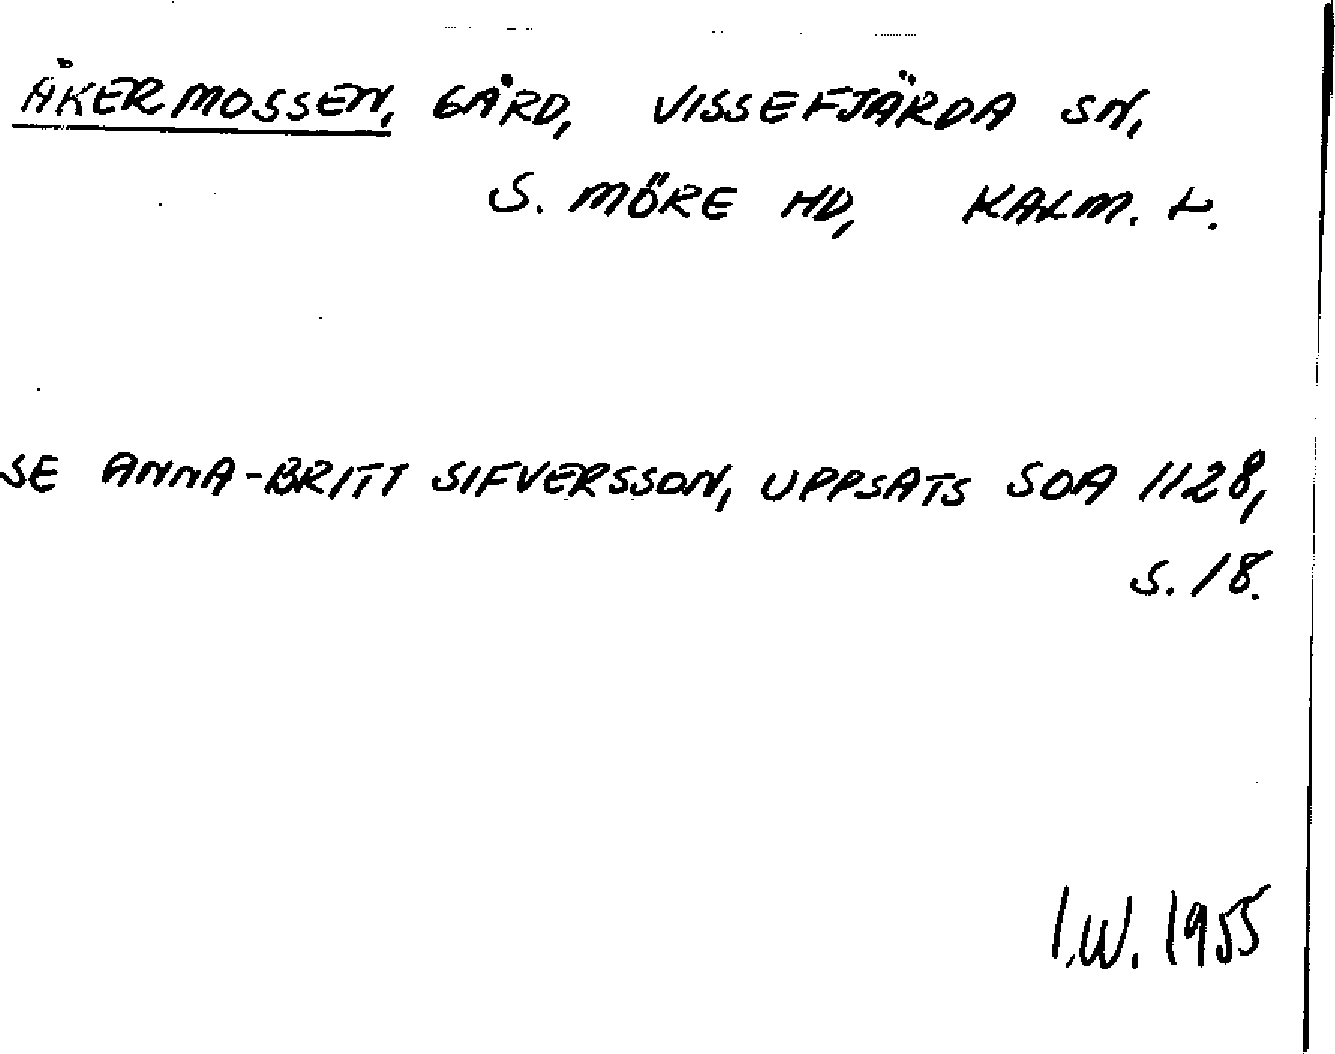 ÅKERMOSSEN, GÅRD, VISSEFJÄRDA SN,
S. MÖRE HD, KALM. L.
SE ANNA-BRITT SIFVERSSON, UPPSATS SOA 1128,
S. 18.
I.W. 1955